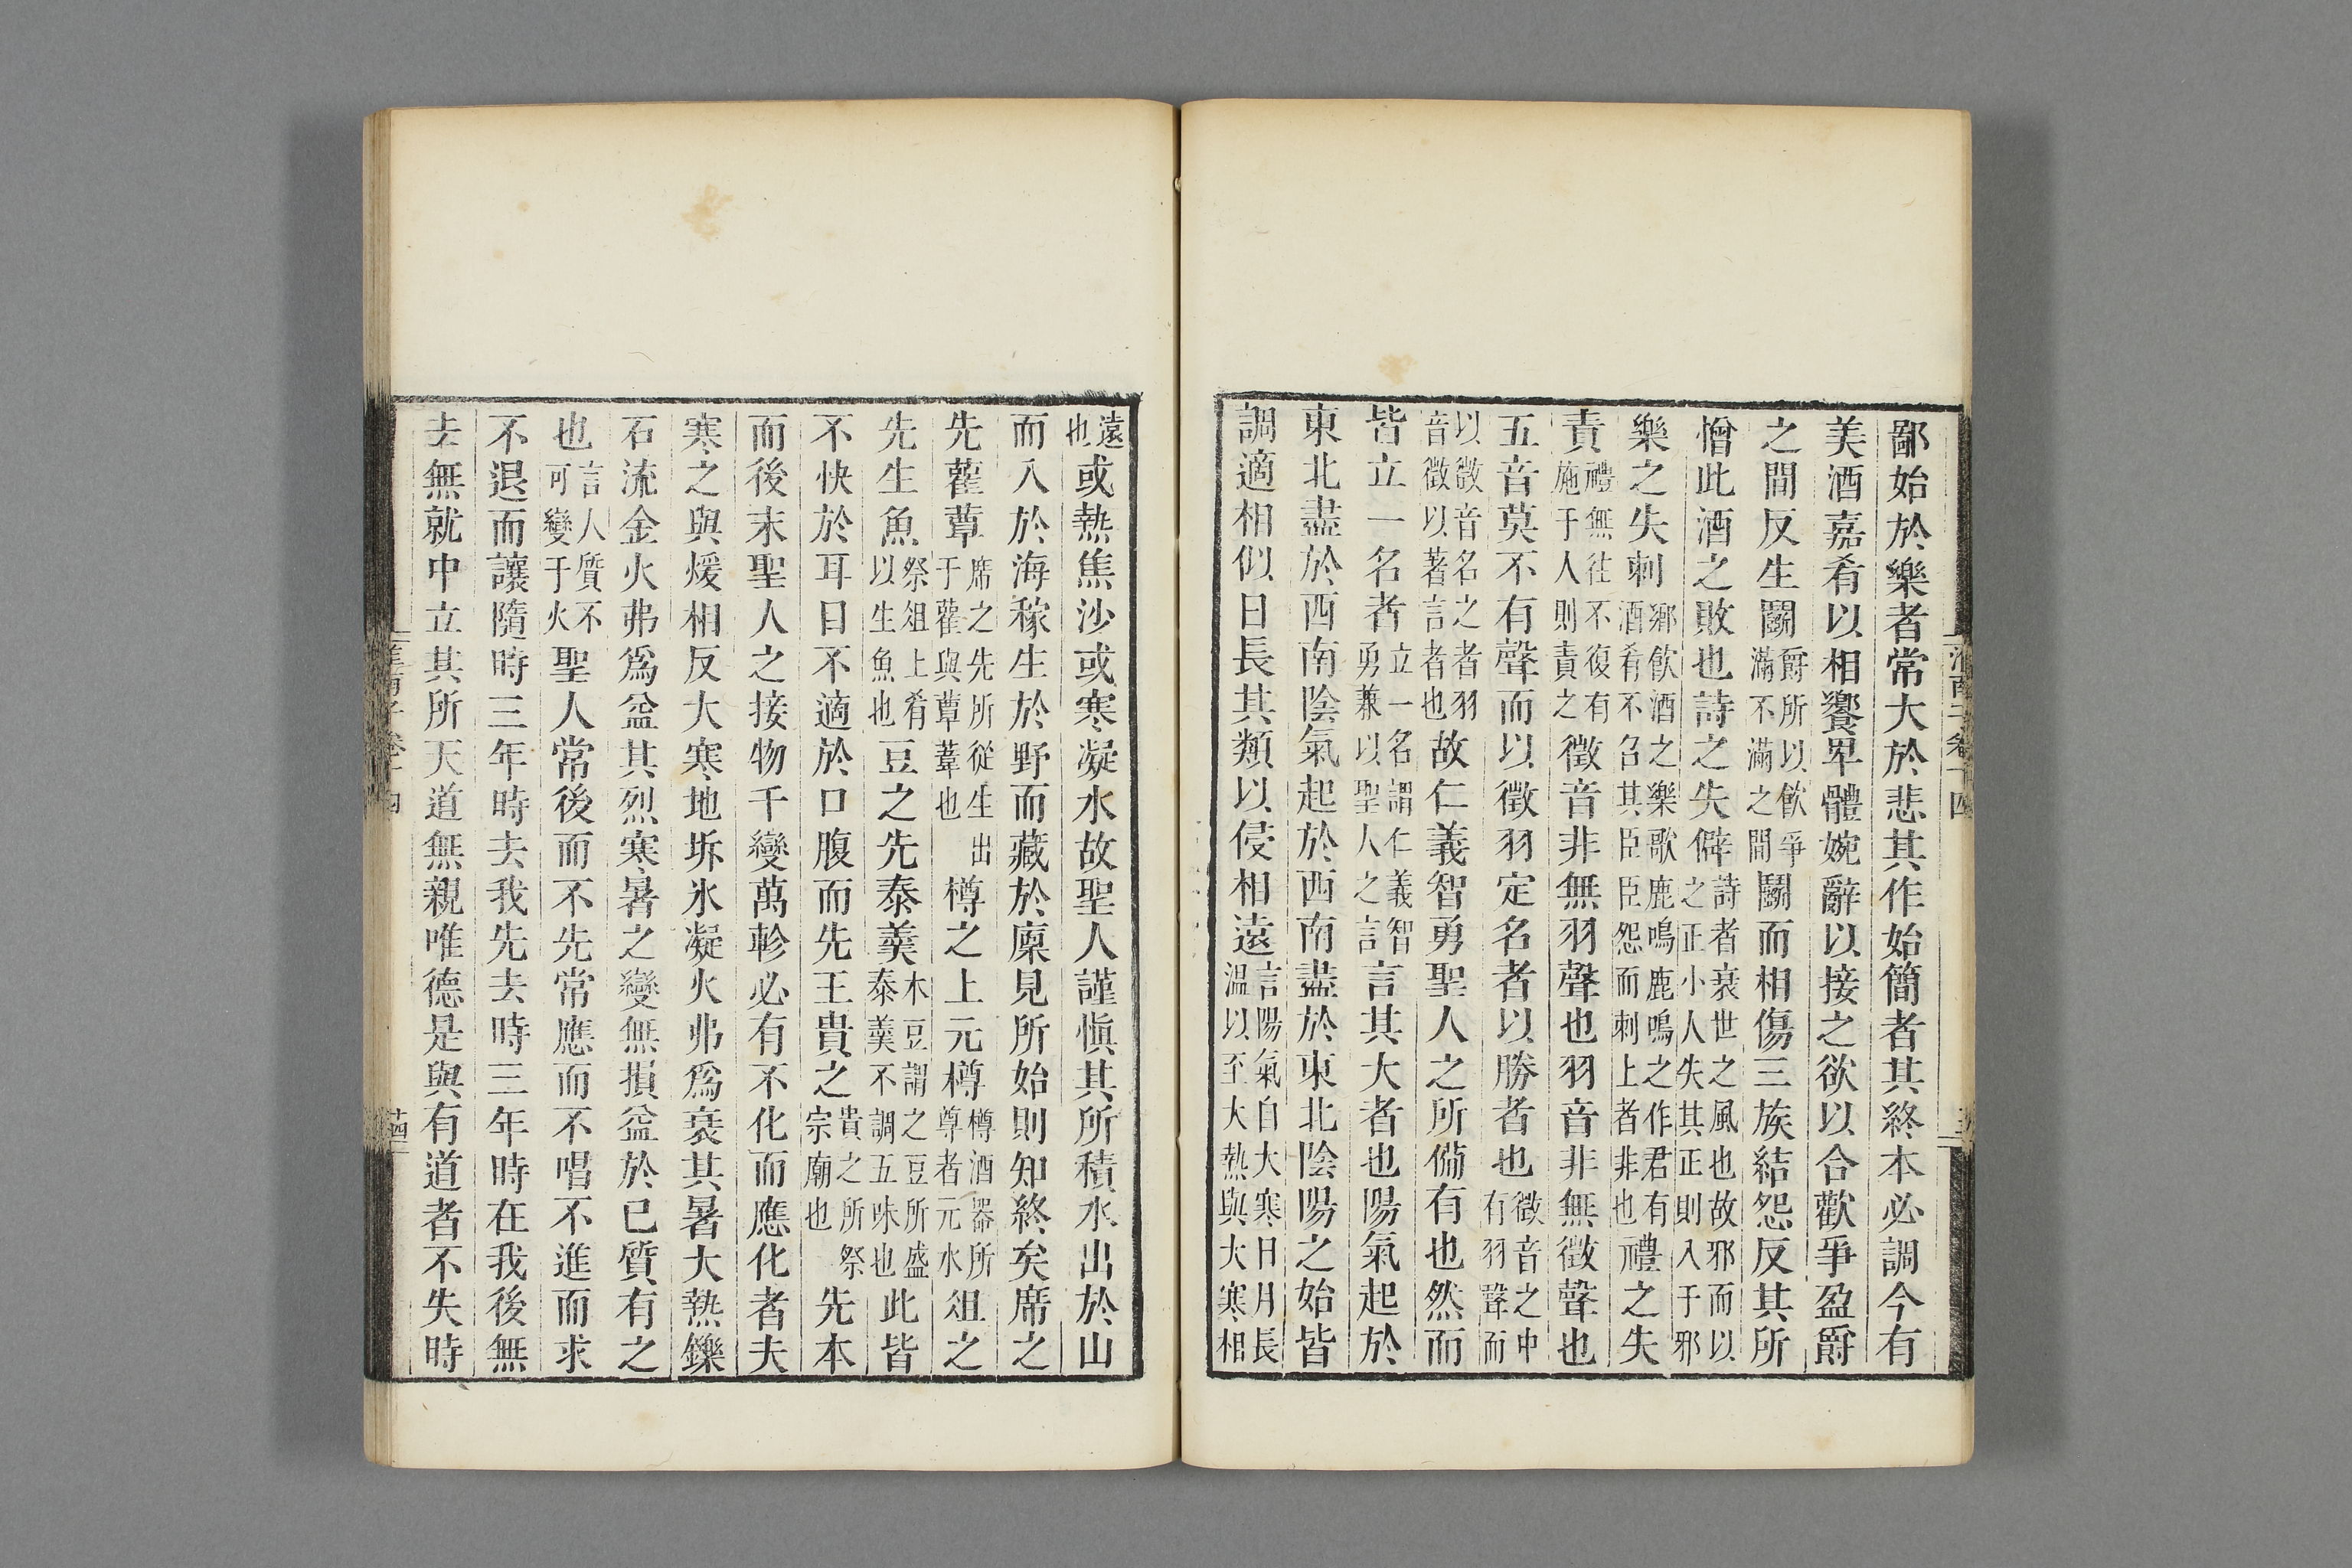 鄙始於樂者常大於悲其作始簡者其終本必調今有
美酒嘉肴以相饗卑體婉辭以接之欲以合歡爭盈爵
之間反生鬭爵所以飲爭滿不滿之間鬬而相傷三族結怨反其所
憎此酒之敗也詩之失僻詩者衰世之風也故邪而以之正小人失其正則入于邪
樂之失刺鄉飲酒之樂歌鹿鳴鹿鳴之作君有酒肴不召其臣臣怨而刺上者非也禮之失
責禮無往不復有施于人則責之徵音非無羽聲也羽音非無徵聲也
五音莫不有聲而以徵羽定名者以勝者也徵音之中有羽聲而
以徵音名之者羽音徵以著言者也故仁義智勇聖人之所備有也然而
皆立一名者立一名謂仁義智勇兼以聖人之言言其大者也陽氣起於
東北盡於西南陰氣起於西南盡於東北陰陽之始皆
調適相似日長其類以侵相遠言陽氣自大寒日月長溫以至大熱與大寒相
遠也或熱焦沙或寒凝水故聖人謹慎其所積水出於山
而入於海稼生於野而藏於廩見所始則知終矣席之
先雚蕈席之先所從生出于雚與蕈葦也樽之上元樽樽酒器所尊者元水俎之
先生魚祭俎上肴以生魚也豆之先泰羹木豆謂之豆所盛泰羹不調五味也此皆
不快於耳目不適於口腹而先王貴之貴之所祭宗廟也先本
而後末聖人之接物千變萬軫必有不化而應化者夫
寒之與煖相反大寒地坼氷凝火弗爲衰其暑大熱鑠
石流金火弗爲益其烈寒暑之變無損益於己質有之
也言人質不可變于火聖人常後而不先常應而不唱不進而求
不退而讓隨時三年時去我先去時三年時在我後無
去無就中立其所天道無親唯德是與有道者不失時